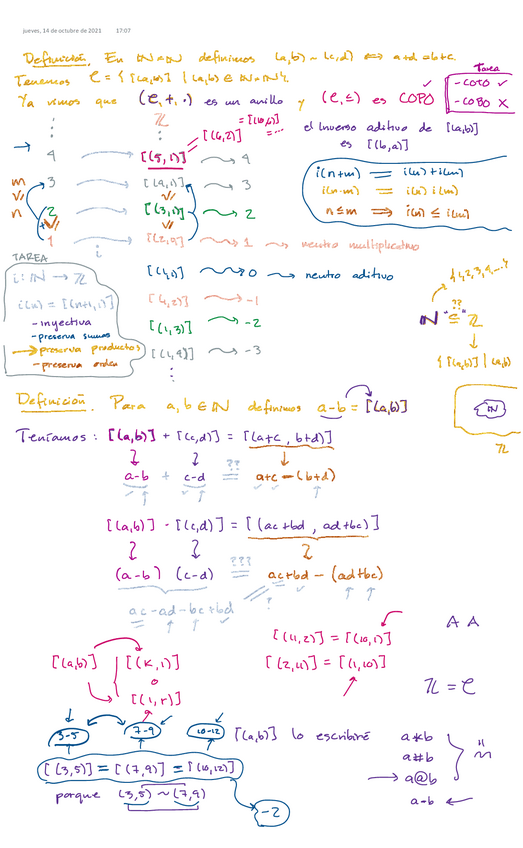 jueves, 14 de octubre de 2021 17:07
Definición. En ℕ×ℕ definimos (a,b) ~ (c,d) ⟺ a+d = b+c.
Tenemos C = { [(a,b)] | (a,b) ∈ ℕ×ℕ }.
Ya vimos que (C, +, ·) es un anillo y (C, ≤) es COPO
Tarea
- COTO ✓
- COBO ✗
el inverso aditivo de [(a,b)]
es [(b,a)]
ℤ
= [(10,6)]
[(6,2)] = ...
4 [(5,1)] 4
3 [(4,1)] 3
2 [(3,1)] 2
1 [(2,1)] 1 neutro multiplicativo
[(1,1)] 0 neutro aditivo
[(1,2)] -1
[(1,3)] -2
[(1,4)] -3
m
n
i
i(n+m) = i(n)+i(m)
i(n·m) = i(n) i(m)
n≤m ⟹ i(n) ≤ i(m)
TAREA
i: ℕ → ℤ
i(n) = [(n+1,1)]
- inyectiva
- preserva sumas
→ preserva productos
- preserva orden
{1,2,3,4,...}
??
ℕ "⊆" ℤ
{[(a,b)] | (a,b)
ℕ
ℤ
Definición. Para a, b ∈ ℕ definimos a-b = [(a,b)]
Teníamos: [(a,b)] + [(c,d)] = [(a+c, b+d)]
a-b + c-d =?? a+c - (b+d)
[(a,b)] · [(c,d)] = [(ac+bd, ad+bc)]
(a-b) (c-d) =??? ac+bd - (ad+bc)
ac-ad-bc+bd ?
[(11,2)] = [(10,1)]
[(2,11)] = [(1,10)]
A A
[(a,b)] [(k,1)]
o
[(1,r)]
ℤ = C
3-5 7-9 10-12
[(a,b)] lo escribiré
a*b
a#b
→ a@b
a-b ←
[(3,5)] = [(7,9)] = [(10,12)]
porque (3,5) ~ (7,9)
-2